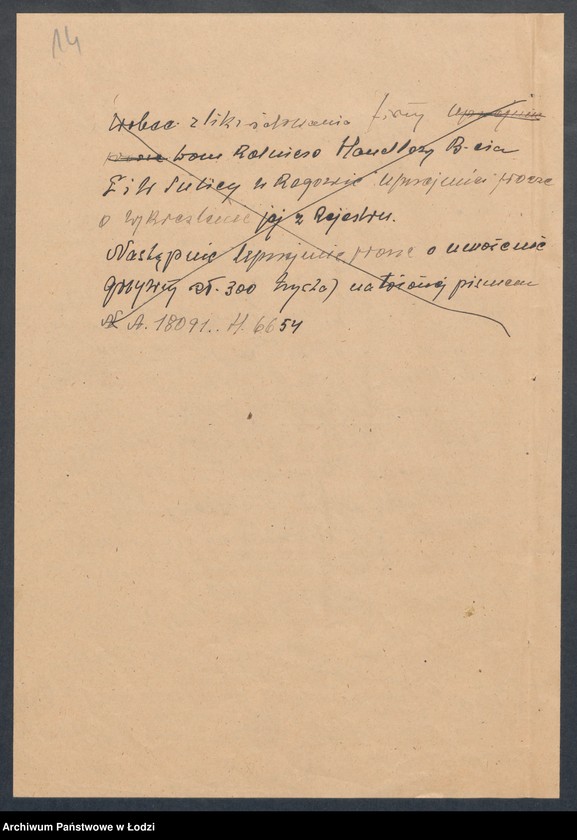 14
Wobec zlikwidowania firmy uprzejmie
proszę Dom Rolniczo Handlowy B-cia
i W w Rogowie uprzejmie proszę
o wykreślenie jej z Rejestru.
Następnie uprzejmie proszę o umożenie
grzywny zł. 300 nałożonej pismem
A. 18091. H. 6654
Archiwum Państwowe w Łodzi